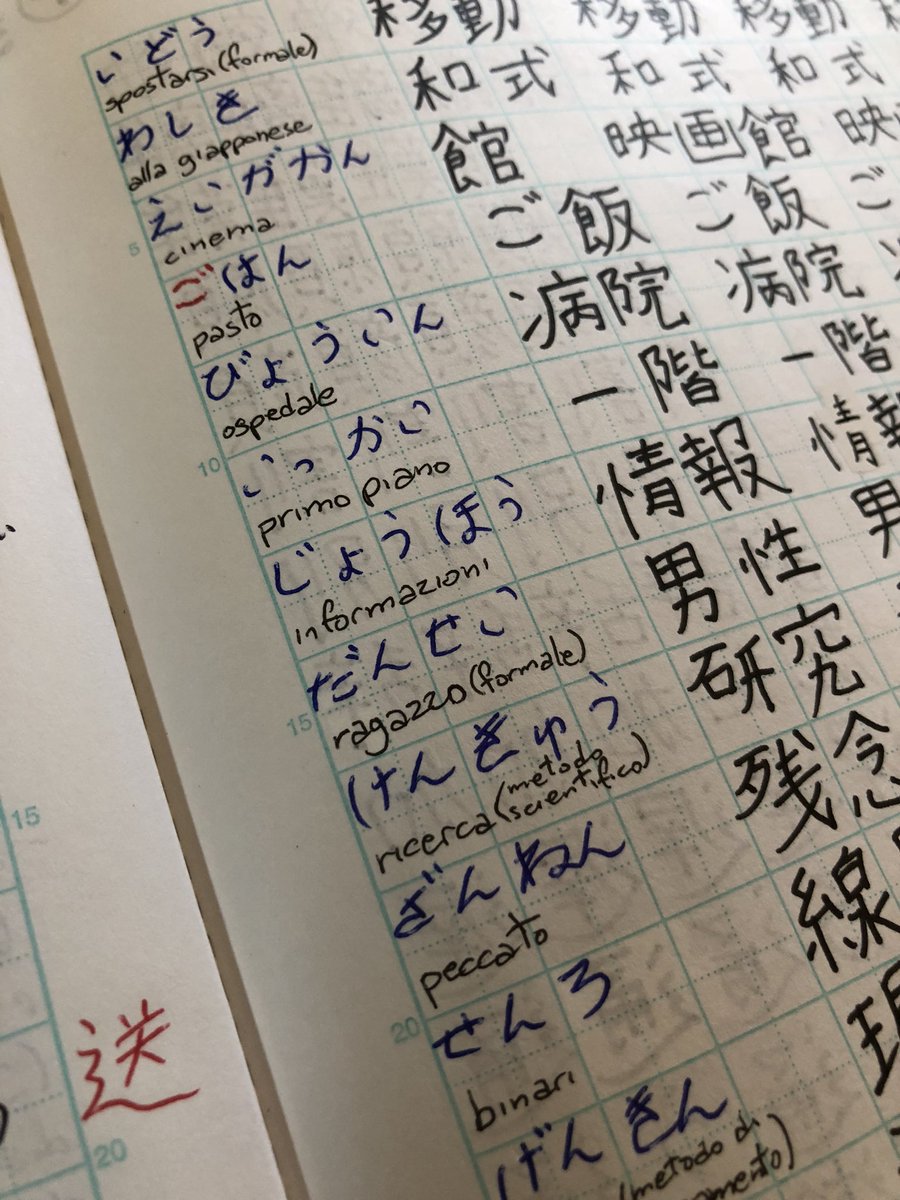 いどう 移動 移動 移動
spostarsi (formale)
わしき 和式 和式 和式
alla giapponese
えいがかん 館 映画館 映
5
cinema
ごはん ご飯 ご飯 ご
pasto
びょういん 病院 病院
ospedale
10
いっかい 一階 一階
primo piano
じょうほう 情報 情報
informazioni
だんせい 男性 男
15
ragazzo (formale)
けんきゅう 研究
ricerca (metodo
scientifico)
ざんねん 残念
peccato
20
せんろ 線
binari
げんきん 現
(metodo di
15
送
20